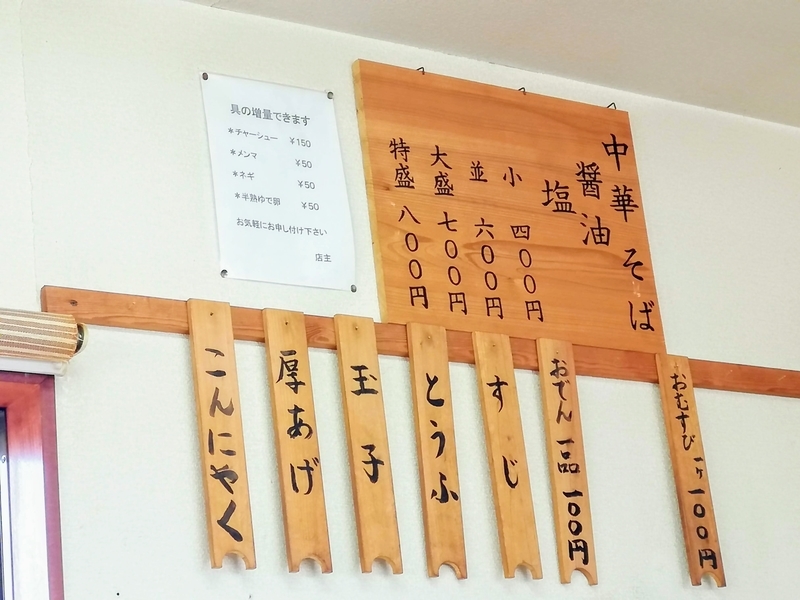 具の増量できます
*チャーシュー ¥150
*メンマ ¥50
*ネギ ¥50
*半熟ゆで卵 ¥50
お気軽にお申し付け下さい
店主
中華そば
醤油
塩
小 四００円
並 六００円
大盛 七００円
特盛 八００円
おむすび 一ヶ 一００円
おでん 一品 一００円
すじ
とうふ
玉子
厚あげ
こんにゃく